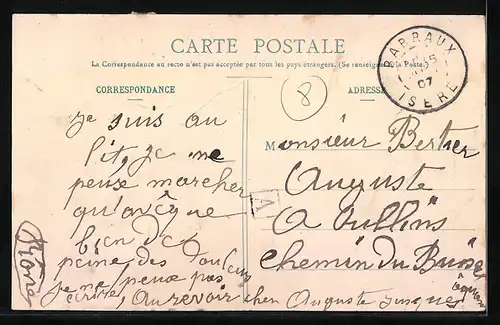 CARTE POSTALE
La Correspondance au recto n'est pas acceptée par tous les pays étrangers. (Se renseigner à la Poste.)
CORRESPONDANCE
ADRESSE
BARRAUX
07
ISERE
8
je suis au
lit je ne
peux marcher
qu'avêque
bien des
peine des Douleurs
je ne peux pas
écrire, au revoir chen Auguste
A
Monsieur Bertier
Auguste
A Oullins
chemin du